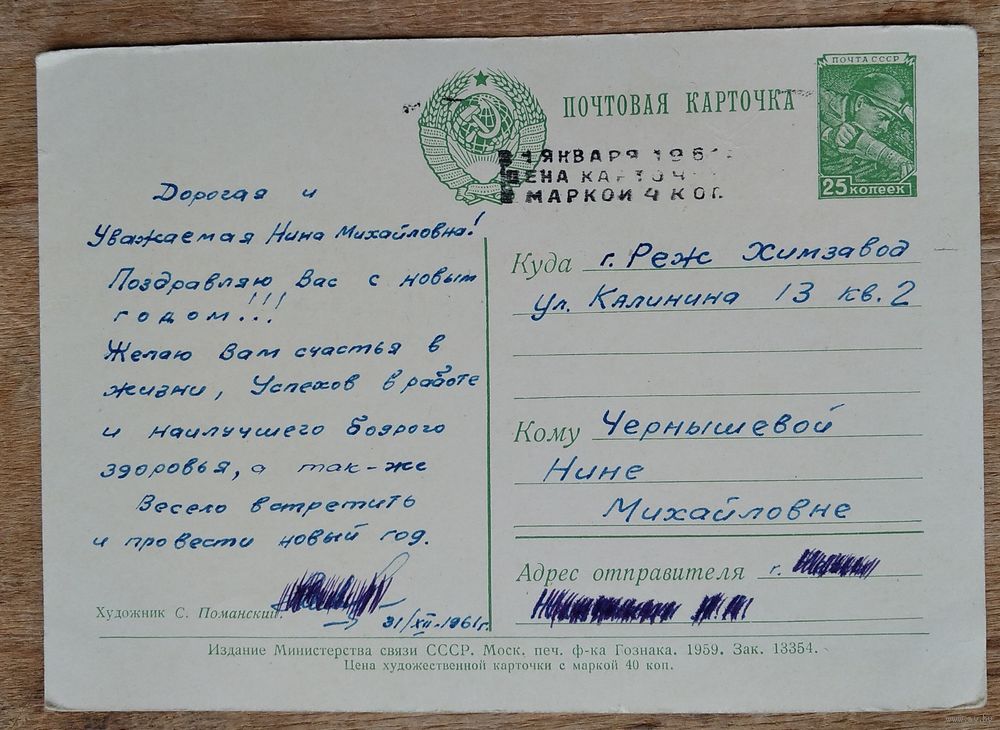 ПОЧТОВАЯ КАРТОЧКА
ПОЧТА СССР
25 копеек
1 ЯНВАРЯ 1961
ЦЕНА КАРТОЧ
МАРКОЙ 4 КОП.
Дорогая и
Уважаемая Нина Михайловна!
Поздравляю Вас с новым
годом!!!
Желаю Вам счастья в
жизни, Успехов в работе
и наилучшего бодрого
здоровья, а так-же
Весело встретить
и провести новый год.
31/XII-1961г.
Художник С. Поманский.
Куда г. Реж Химзавод
ул. Калинина 13 кв. 2
Кому Чернышевой
Нине
Михайловне
Адрес отправителя г.
Издание Министерства связи СССР. Моск. печ. ф-ка Гознака. 1959. Зак. 13354.
Цена художественной карточки с маркой 40 коп.